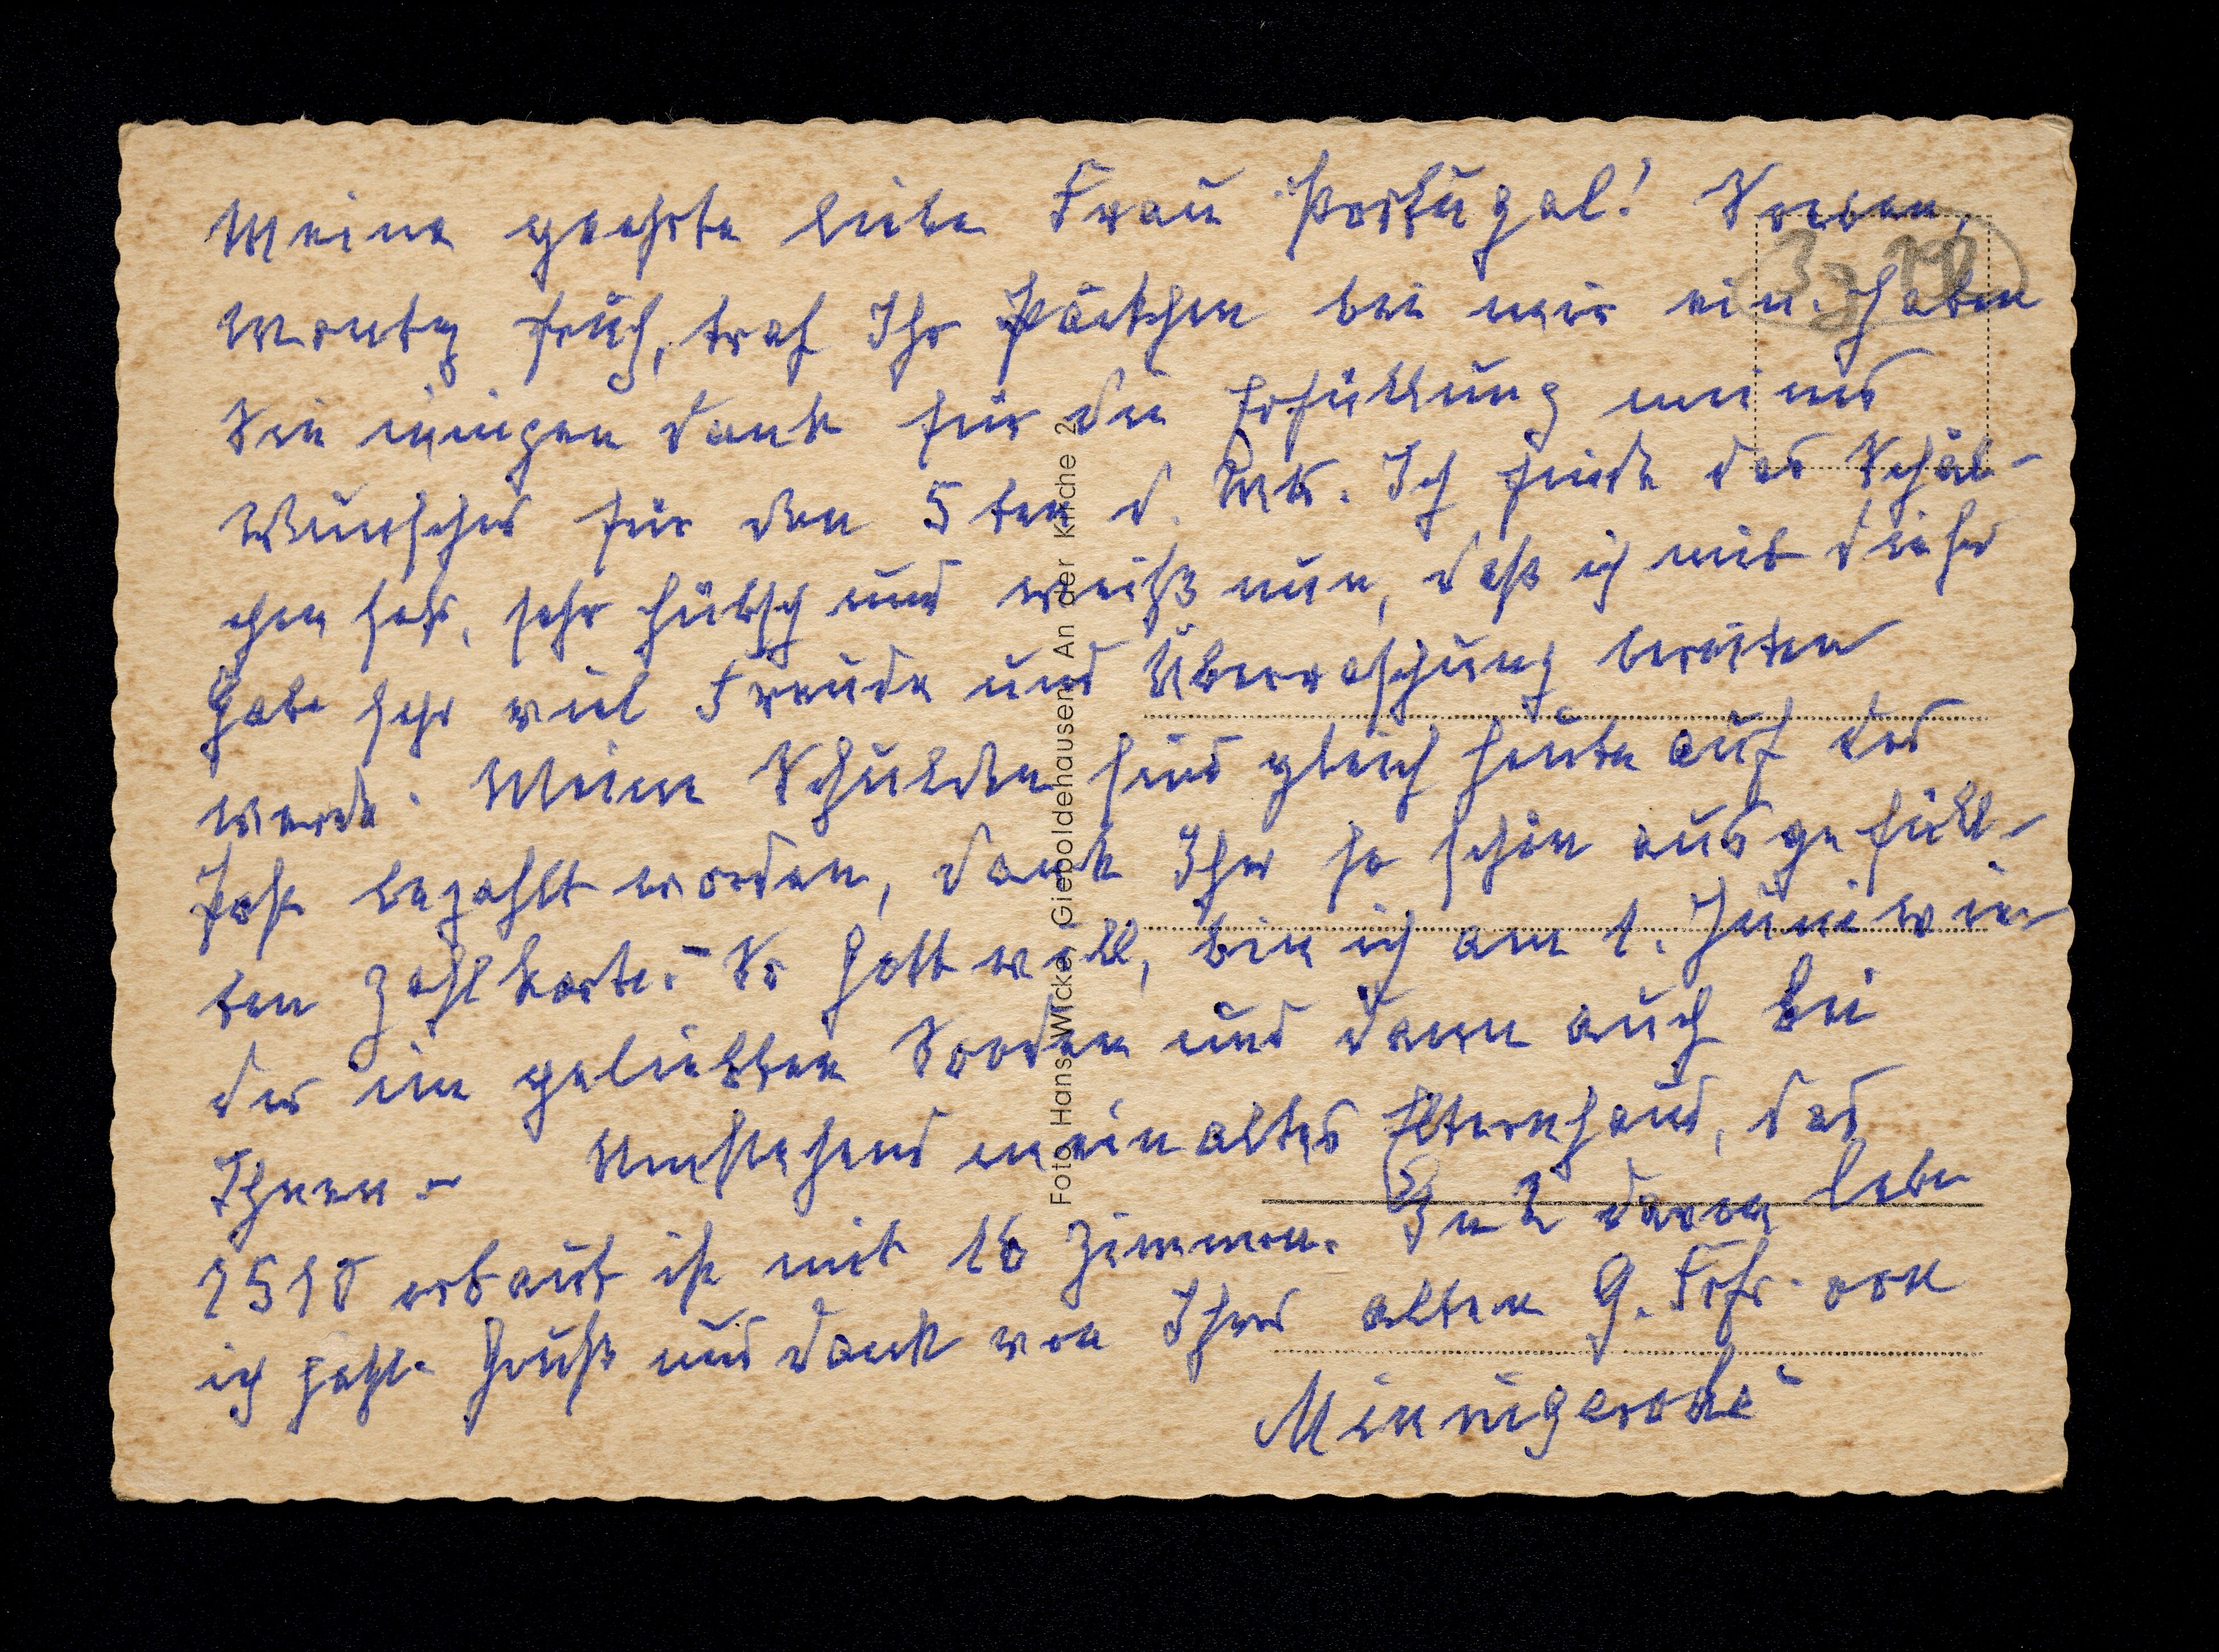 Meine geehrte liebe Frau Portugal! Soeben,
Montag früh, traf Ihr Päckchen bei mir ein. Haben
Sie innigen Dank für die Erfüllung meines
Wunsches für den 5ten d. Mts. Ich finde das Schäl-
chen sehr, sehr hübsch und weiß nun, daß ich mit dieser
Gabe sehr viel Freude und Überraschung bereiten
werde. Meine Schulden sind gleich heute auf der
Post bezahlt worden, dank Ihrer so schön ausgefüll-
ten Zahlkarte. – So Gott will, bin ich am 1. Juni wie-
der im geliebten Sooden und dann auch bei
Ihnen. – Umstehend mein altes Elternhaus, das
1518 erbaut ist mit 16 Zimmern. In 2 davon lebe
ich jetzt. Gruß und Dank von Ihrem alten G. Frhr. von
Minnigerode
Foto Hans Wicke, Gieboldehausen, An der Kirche 2